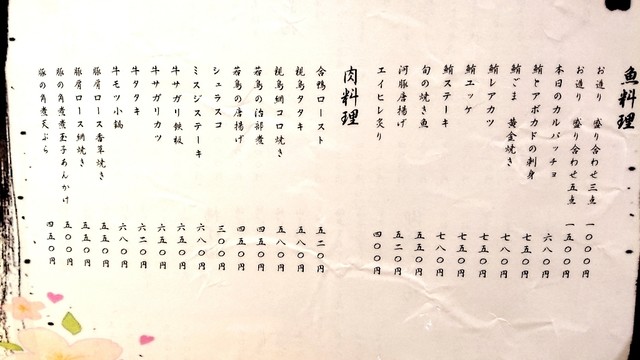 魚料理
お造り 盛り合わせ三点 一〇〇〇円
お造り 盛り合わせ五点 一五〇〇円
本日のカルパッチョ 六八〇円
鮪とアボカドの刺身 七五〇円
鮪ごま 黄金焼き 七八〇円
鮪レアカツ 七五〇円
鮪ユッケ 七五〇円
鮪ステーキ 七八〇円
旬の焼き魚 五五〇円
河豚唐揚げ 五二〇円
エイヒレ炙り 四〇〇円
肉料理
合鴨ロースト 五二〇円
親鳥タタキ 五五〇円
親鳥網コロ焼き 五八〇円
若鳥の治部煮 四五〇円
若鳥の唐揚げ 四五〇円
シュラスコ 三〇〇円
ミスジステーキ 六八〇円
牛サガリ鉄板 六五〇円
牛サガリカツ 六五〇円
牛タタキ 六二〇円
牛モツ小鍋 六八〇円
豚肩ロース香草焼き 五五〇円
豚肩ロース網焼き 五五〇円
豚の角煮煮玉子あんかけ 五〇〇円
豚の角煮天ぷら 四五〇円